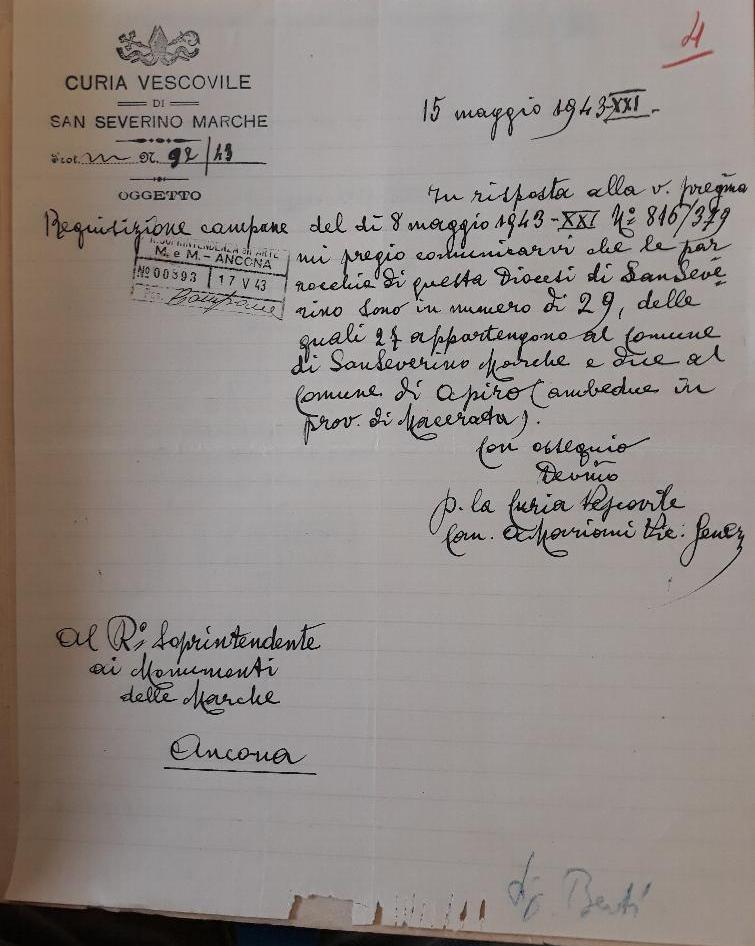 4
CURIA VESCOVILE
DI
SAN SEVERINO MARCHE
Prot. N. 92/43
OGGETTO
Requisizione campane
R. SOPRINTENDENZA
M. e M. - ANCONA
No 00893 17 V 43
Pos. Campane
15 maggio 1943-XXI.
In risposta alla v. pregma
del dì 8 maggio 1943-XXI No 816/379
mi pregio comunicarvi che le par
rocchie di questa Diocesi di San Seve=
rino sono in numero di 29, delle
quali 27 appartengono al comune
di San Severino Marche e due al
comune di Apiro (ambedue in
prov. di Macerata).
Con ossequio
Devmo
p. la Curia Vescovile
Can. Marioni Vic. Gener
Al Ro Soprintendente
ai Monumenti
delle Marche
Ancona
Berti